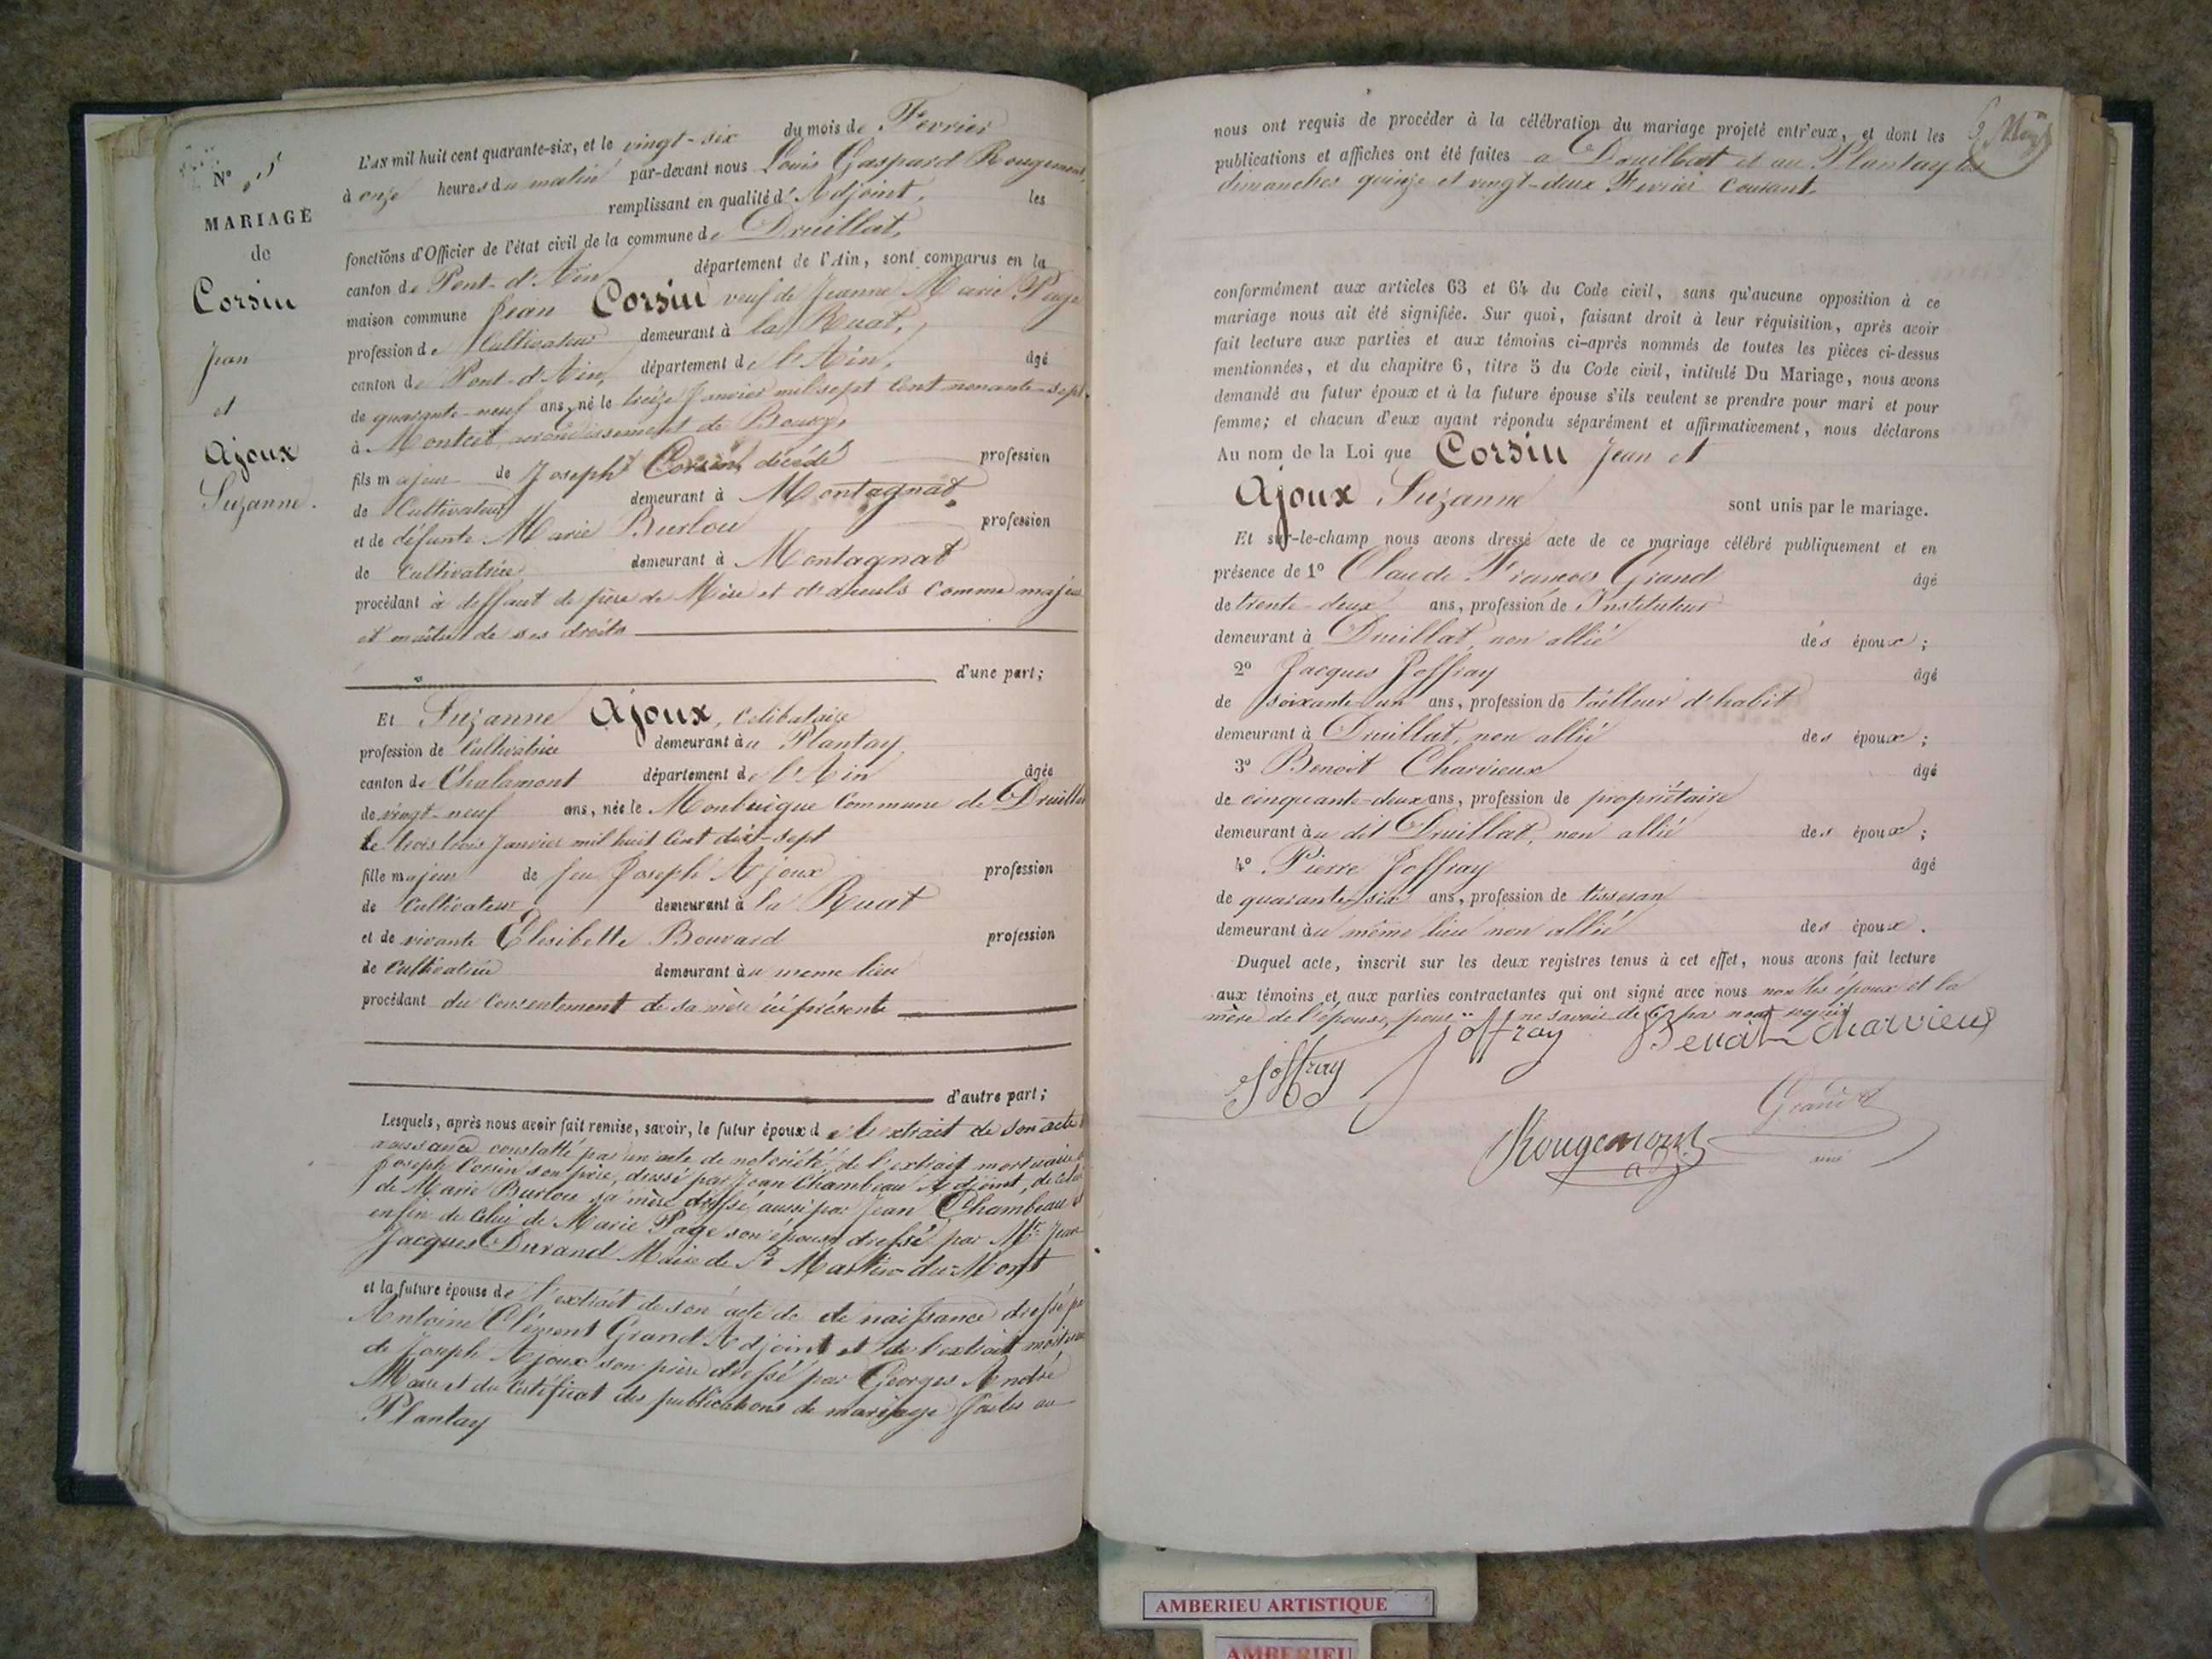 N° 5
MARIAGE
de
Corsin
Jean
et
Ajoux
Suzanne.
L'AN mil huit cent quarante-six, et le vingt-six du mois de Fevrier
à onze heures du matin par-devant nous Louis Gaspard Rougemont,
remplissant en qualité d'Adjoint, les
fonctions d'Officier de l'état civil de la commune de Druillat,
canton de Pont-d'Ain département de l'Ain, sont comparus en la
maison commune Jean Corsin veuf de Jeanne Marie Page
profession de Cultivateur demeurant à la Ruat,
canton de Pont-d'Ain, département de l'Ain, âgé
de quarante-neuf ans, né le treize Janvier mil sept Cent nonante-sept
à Montcet arrondissement de Bourg,
fils majeur de Joseph Corsin, décédé profession
de Cultivateur demeurant à Montagnat
et de défunte Marie Burlou profession
de Cultivatrice demeurant à Montagnat
procédant à deffaut de père de Mère et d'ayeuls comme majeur
et maître de ses droits
d'une part;
Et Suzanne Ajoux, Celibataire
profession de Cultivatrice demeurant au Plantay.
canton de Chalamont département de l'Ain âgée
de vingt-neuf ans, née le Monbuègue Commune de Druillat
le trois trois Janvier mil huit Cent dix-sept
fille majeur de feu Joseph Ajoux profession
de Cultivateur demeurant à la Ruat
et de vivante Elisibette Bouvard profession
de Cultivatrice demeurant au meme lieu
procédant du Consentement de sa mère ici présente
d'autre part;
Lesquels, après nous avoir fait remise, savoir, le futur époux de l'extrait de son acte
naissance constatté par un acte de notoriété, de l'extrait mortuaire
Joseph Corsin son père, dressé par Jean Chambeau Adjoint, de celui
de Marie Burlou sa mère dressé aussi par Jean Chambeau et
enfin de Celui de Marie Page son épouse dressé par Mr Jean
Jacques Durand Maire de St Martin-du-Mont
et la future épouse de l'extrait de son acte de de naissance dressé par
Antoine Clément Grand Adjoint et de l'extrait mortuaire
de Joseph Ajoux son père dressé par Georges André
Maire et du Certificat des publications de mariage faites au
Plantay
nous ont requis de procéder à la célébration du mariage projeté entr'eux, et dont les
publications et affiches ont été faites à Druillat et au Plantay les
dimanches quinze et vingt-deux Fevrier Courant,
conformément aux articles 63 et 64 du Code civil, sans qu'aucune opposition à ce
mariage nous ait été signifiée. Sur quoi, faisant droit à leur réquisition, après avoir
fait lecture aux parties et aux témoins ci-après nommés de toutes les pièces ci-dessus
mentionnées, et du chapitre 6, titre 5 du Code civil, intitulé Du Mariage, nous avons
demandé au futur époux et à la future épouse s'ils veulent se prendre pour mari et pour
femme; et chacun d'eux ayant répondu séparément et affirmativement, nous déclarons
Au nom de la Loi que Corsin Jean et
Ajoux Suzanne sont unis par le mariage.
Et sur-le-champ nous avons dressé acte de ce mariage célébré publiquement et en
présence de 1° Claude François Grand âgé
de trente-deux ans, profession de Instituteur
demeurant à Druillat, non allié des époux;
2° Jacques Joffray âgé
de soixante-un ans, profession de tailleur d'habit
demeurant à Druillat, non allié des époux;
3° Benoit Charvieux âgé
de cinquante-deux ans, profession de propriétaire
demeurant au dit Druillat, non allié des époux;
4° Pierre Joffray âgé
de quarante-six ans, profession de tisseran
demeurant au même lieu non allié des époux.
Duquel acte, inscrit sur les deux registres tenus à cet effet, nous avons fait lecture
aux témoins et aux parties contractantes qui ont signé avec nous non les époux et la
mère de l'épouse, pour ne savoir de ce par nous requis
Joffray Joffray Benoit Charvieux
Grand
Rougemont
adj
AMBERIEU ARTISTIQUE
AMBERIEU